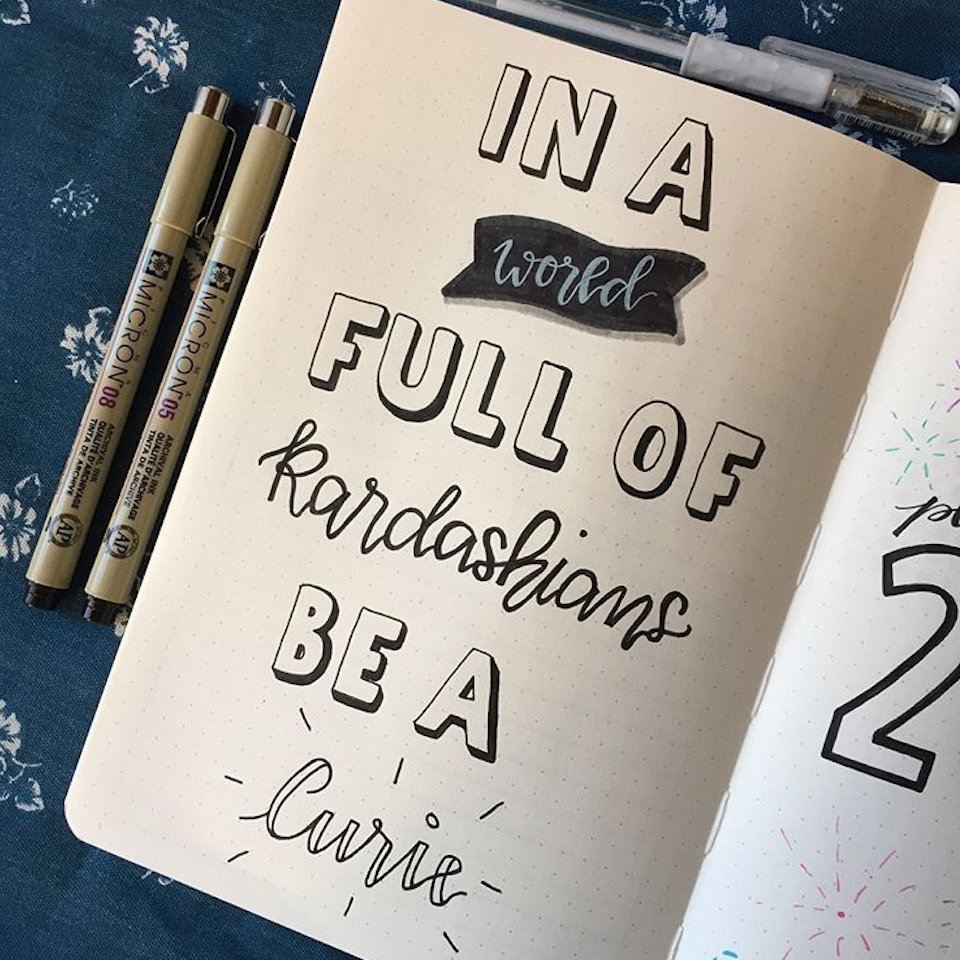 IN A
world
FULL OF
Kardashians
BE A
Curie
MICRON 08
ARCHIVAL INK
QUALITÉ D'ARCHIVAGE
TINTA DE ARCHIVE
AP
MICRON 05
ARCHIVAL INK
QUALITÉ D'ARCHIVAGE
TINTA DE ARCHIVE
AP
2